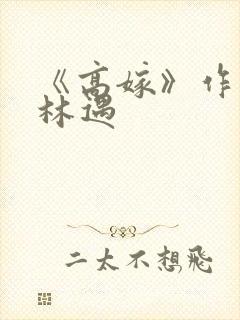 《高嫁》作
林遇
二太不想飛